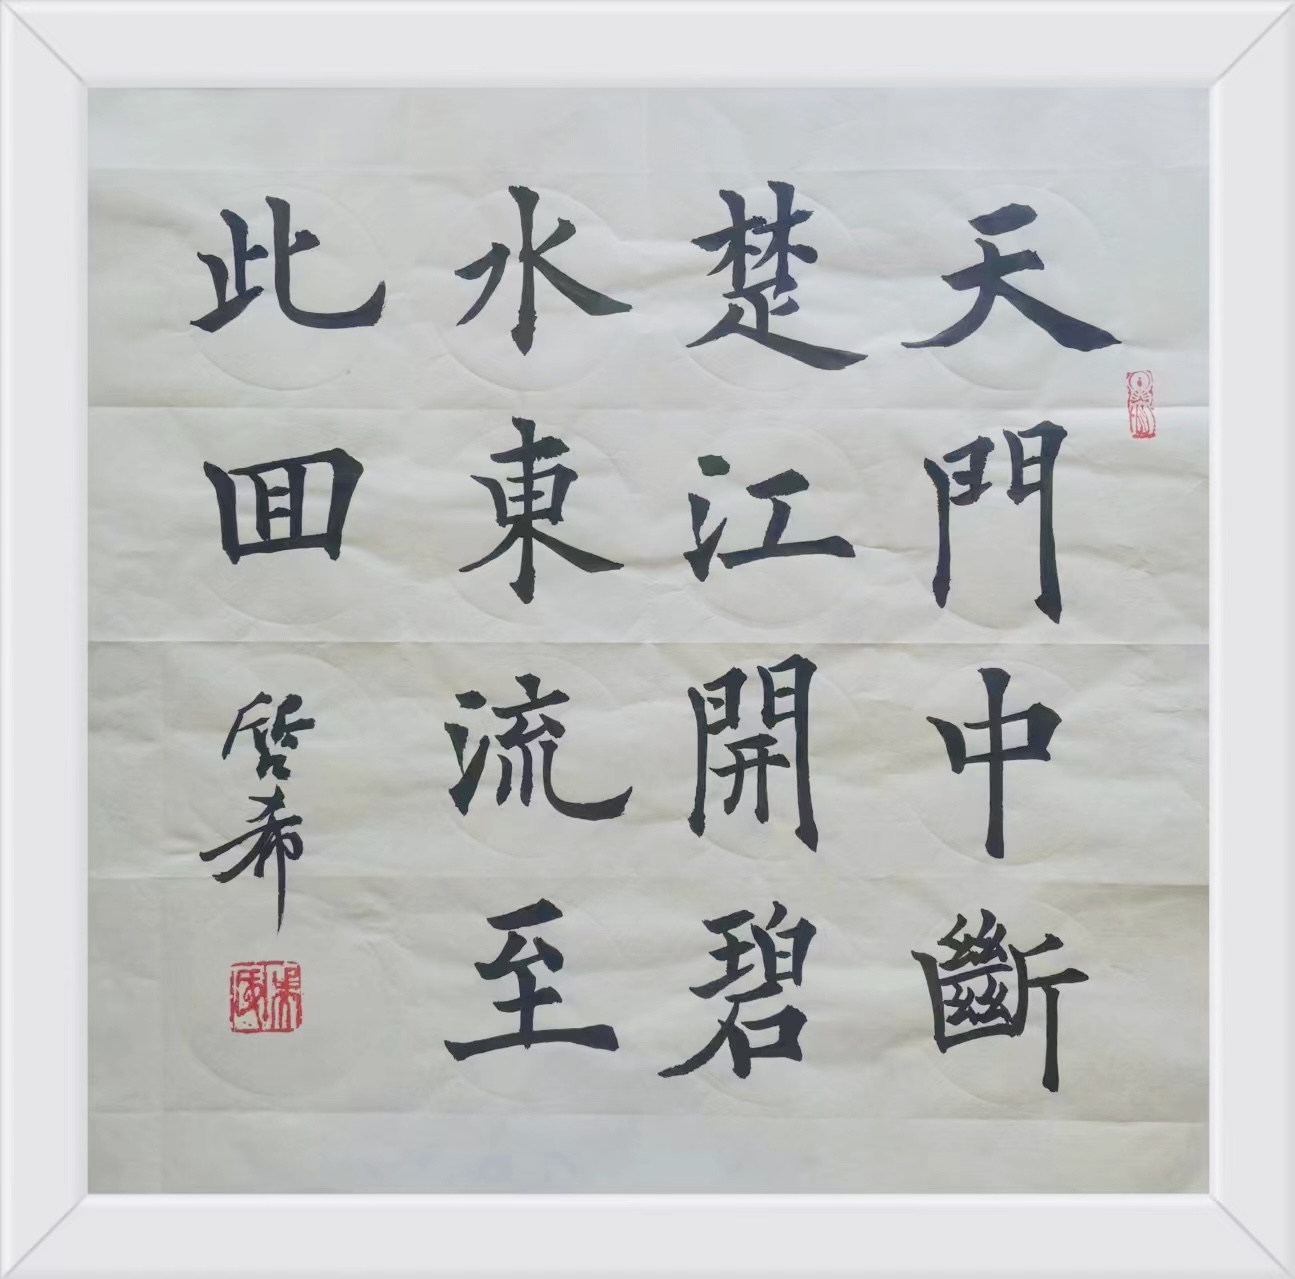 天門中斷
楚江開碧
水東流至
此囬
希